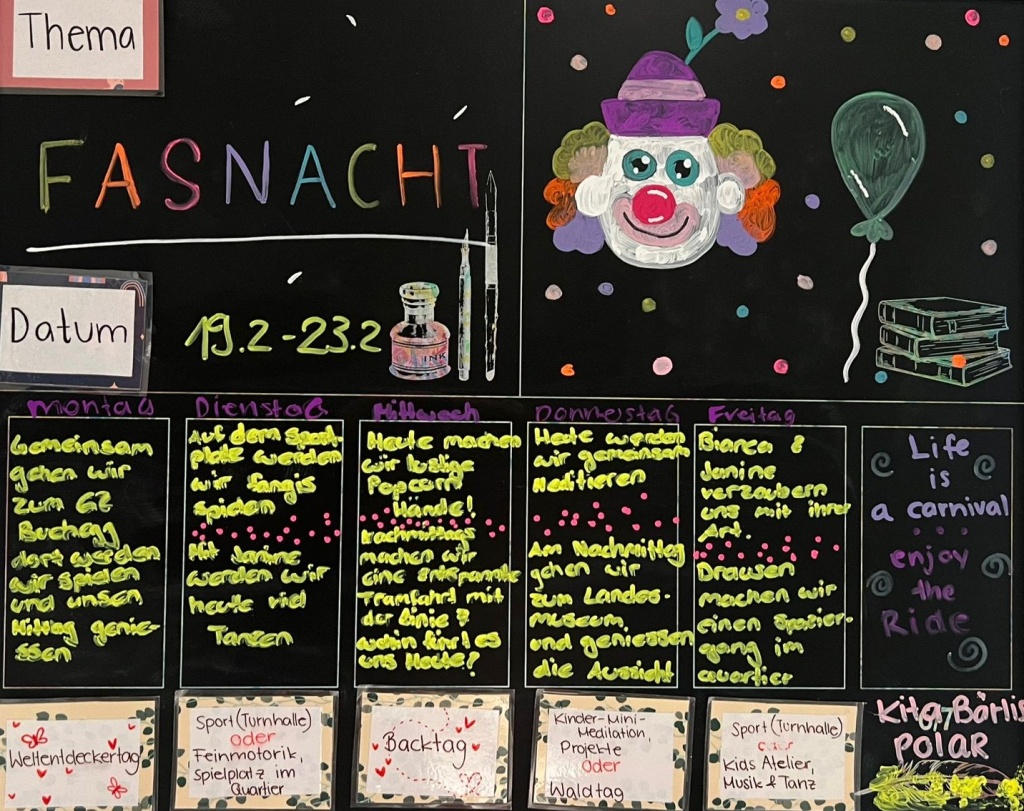 Thema
FASNACHT
Datum
19.2-23.2
INK
Montag
Gemeinsam
gehen wir
zum GZ
Buchegg
dort werden
wir spielen
und unsen
Mittag genie-
ssen
Dienstag
Auf dem Sport-
platz werden
wir fangis
spielen
Mit Janine
werden wir
heute viel
Tanzen
Mittwoch
Heute machen
wir lustige
Popcorn
Hände!
Nachmittags
machen wir
eine entspannte
Tramfahrt mit
der Linie 7
wohin führt es
uns Heute?
Donnerstag
Heute werden
wir gemeinsam
Meditieren
Am Nachmittag
gehen wir
zum Landes-
museum,
und geniessen
die Aussicht
Freitag
Bianca &
Janine
verzaubern
uns mit ihrer
Art.
Draussen
machen wir
einen Spazier-
gang im
Quartier
Life
is
a carnival
enjoy
the
Ride
Weltentdeckertag
Sport(Turnhalle)
oder
Feinmotorik,
Spielplatz im
Quartier
Backtag
Kinder-Mini-
Meditation,
Projekte
Oder
Waldtag
Sport(Turnhalle)
oder
Kids Atelier,
Musik & Tanz
Kita Bärlis
POLAR